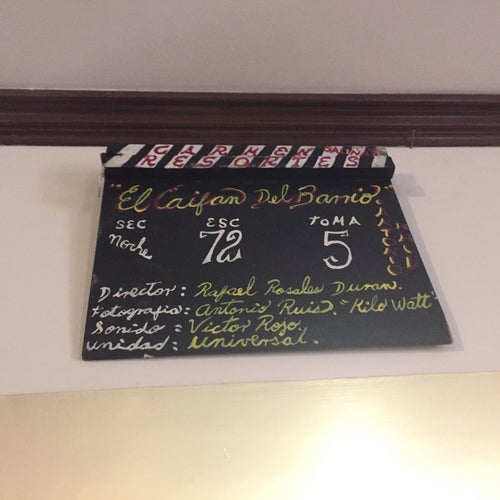 CARMEN SALINAS
RESORTES
"El Caifan Del Barrio"
SEC ESC TOMA
Noche 72 5
Director: Rafael Rosales Duran.
Fotografia: Antonio Ruis. "Kilo Watt"
Sonido = Victor Rojo.
unidad: universal.